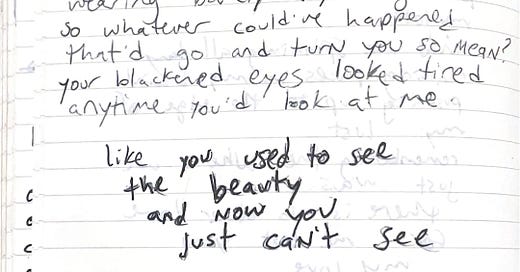 wearing
so whatever could've happened
that'd go and turn you so mean?
your blackened eyes looked tired
anytime you'd look at me
like you used to see
the beauty
and now you
just can't see